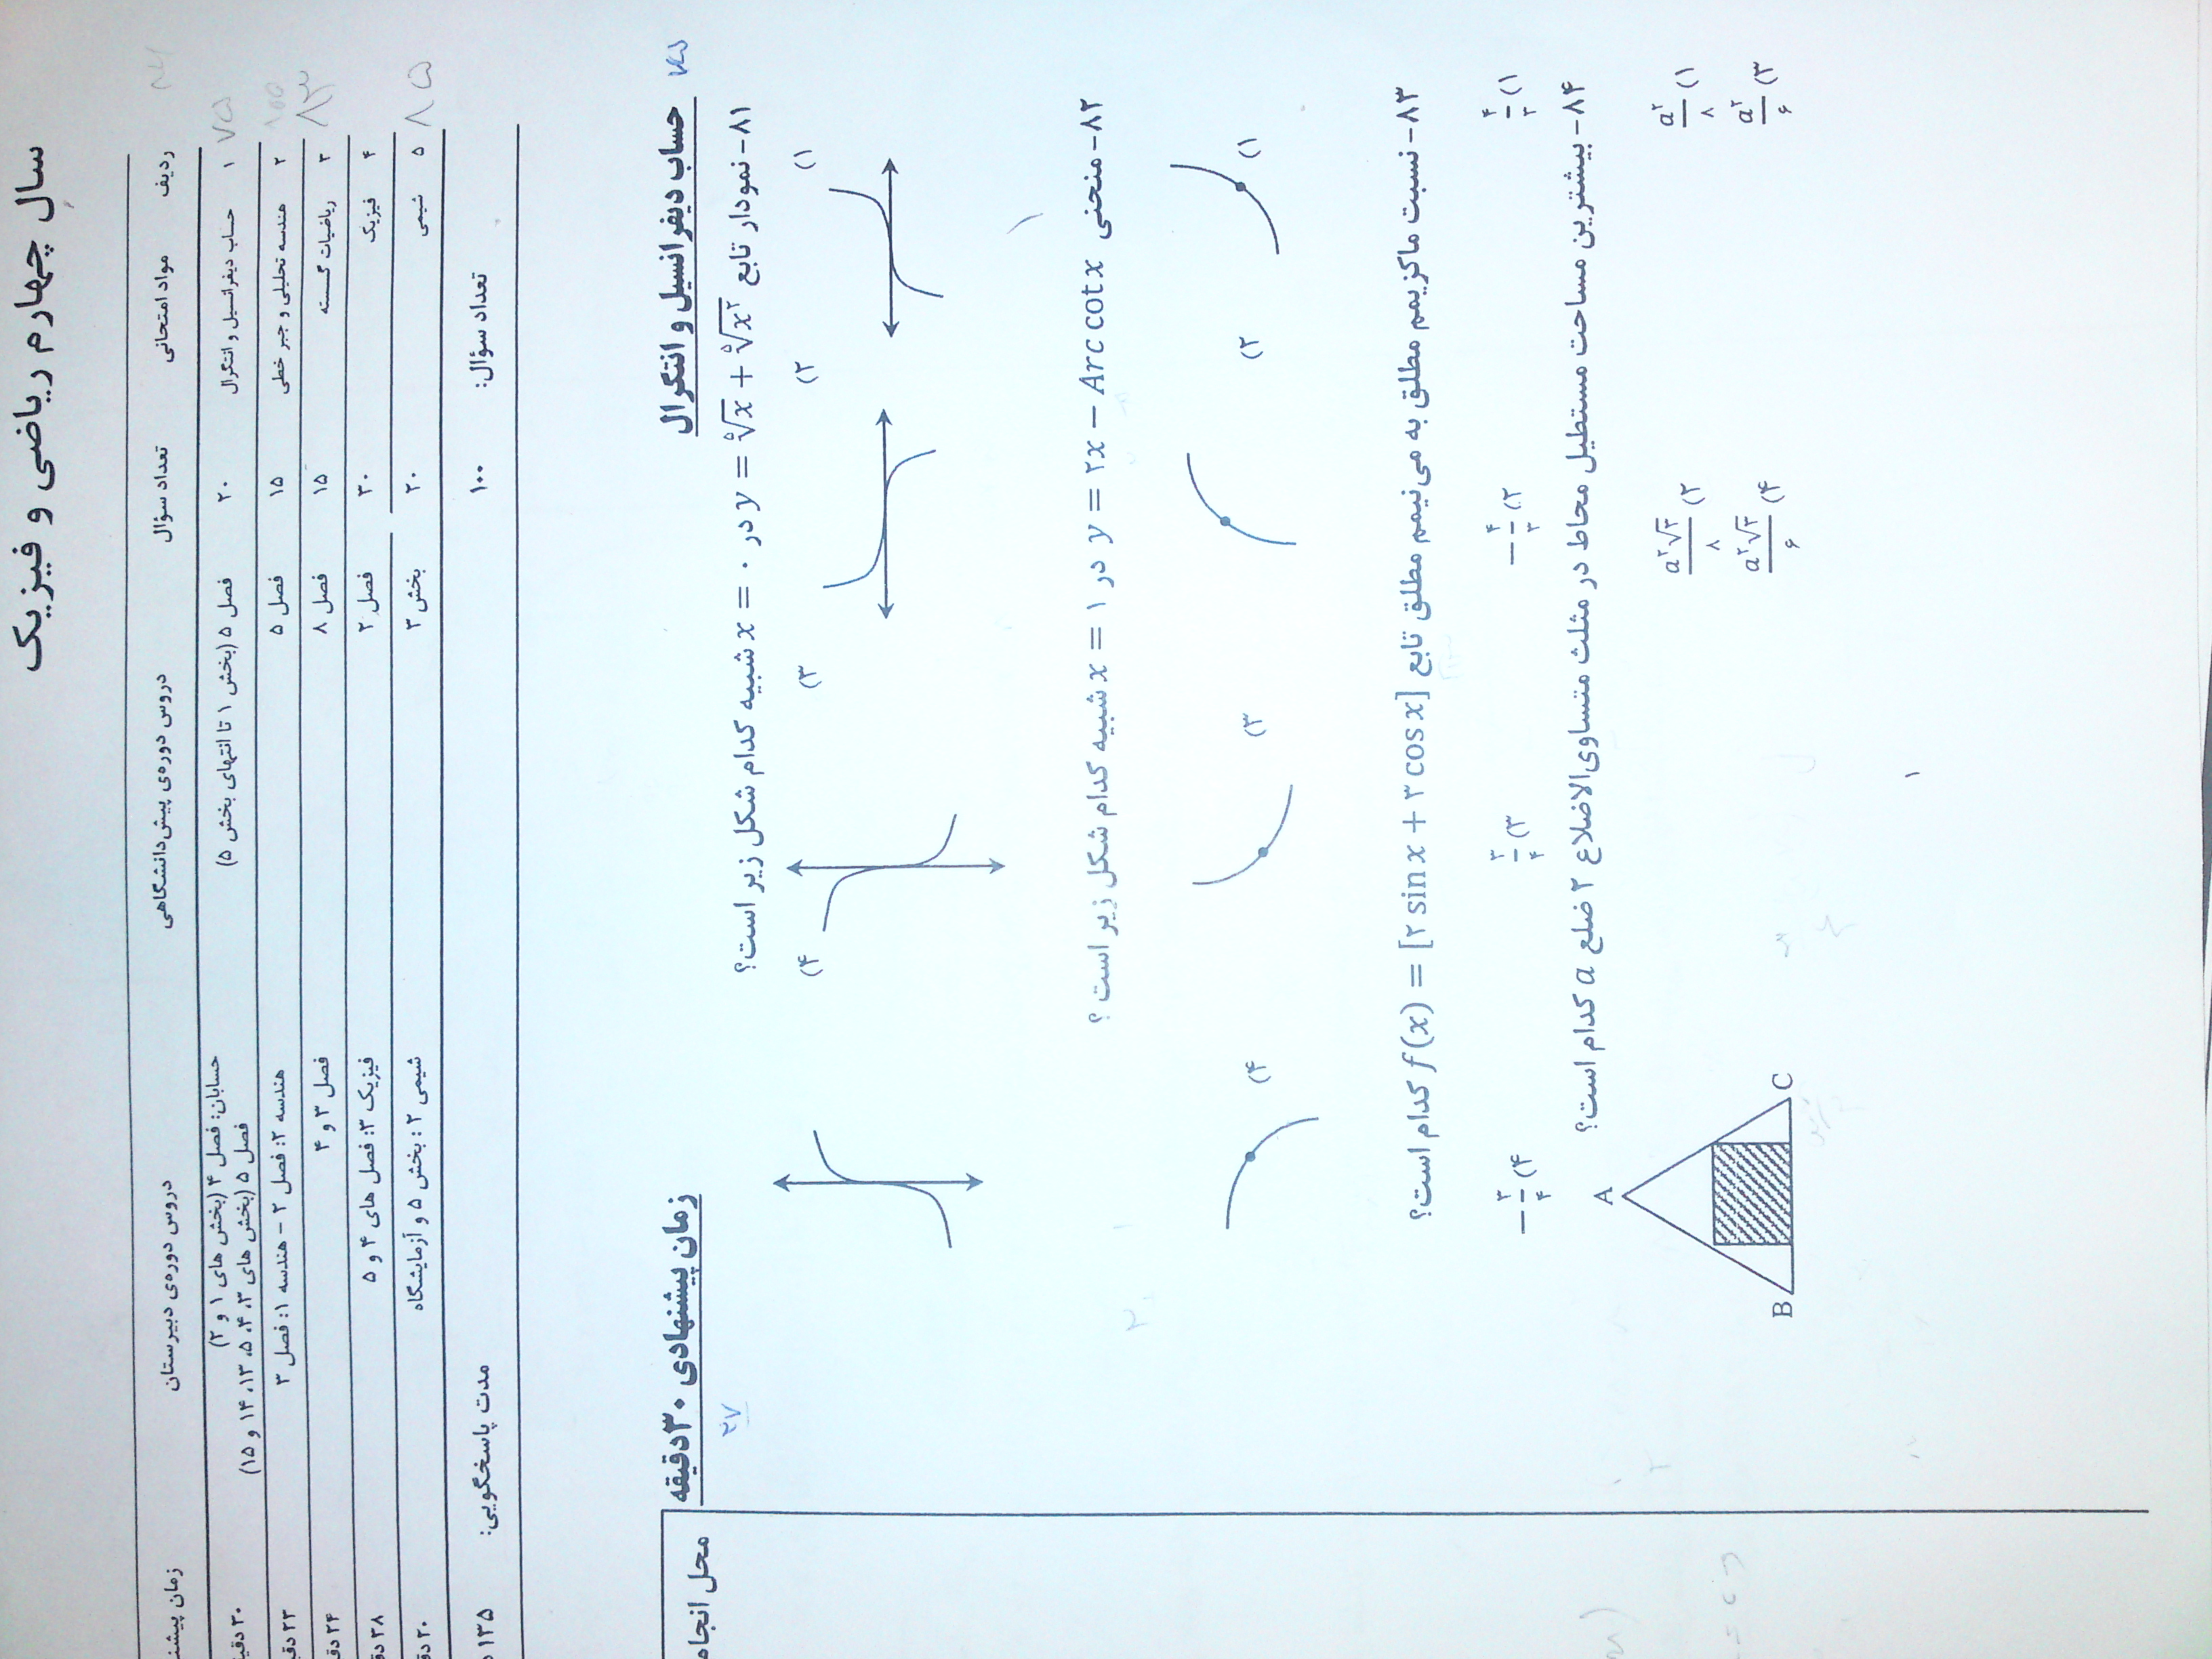 سال چهارم ریاضی و فیزیک
ردیف مواد امتحانی تعداد سؤال دروس دوره‌ی پیش‌دانشگاهی دروس دوره‌ی دبیرستان زمان پیشن
۱ حساب دیفرانسیل و انتگرال ۲۰ فصل ۵ (بخش ۱ تا انتهای بخش ۵) حسابان: فصل ۴ (بخش های ۱ و ۲)
فصل ۵ (بخش های ۳، ۴، ۵، ۱۳، ۱۴ و ۱۵) ۳۰ دقی
۲ هندسه تحلیلی و جبر خطی ۱۵ فصل ۵ هندسه ۲: فصل ۲ – هندسه ۱: فصل ۳ ۲۳ دقی
۳ ریاضیات گسسته ۱۵ فصل ۸ فصل ۳ و ۴ ۲۴ دق
۴ فیزیک ۳۰ فصل ۲ فیزیک ۳: فصل های ۴ و ۵ ۳۸ دق
۵ شیمی ۲۰ بخش ۳ شیمی ۲: بخش ۵ و آزمایشگاه ۲۰ دق
تعداد سؤال: ۱۰۰ مدت پاسخگویی: ۱۳۵
۷۵
۱۰۰
۸۳
۸۵
حساب دیفرانسیل و انتگرال زمان پیشنهادی ۳۰ دقیقه
۷۵
۲۷
محل انجام
۸۱- نمودار تابع y = ⁵√x + ⁵√x² در x = ۰ شبیه کدام شکل زیر است؟
۱) ۲) ۳) ۴)
۸۲- منحنی y = ۲x − Arc cot x در x = ۱ شبیه کدام شکل زیر است ؟
۱) ۲) ۳) ۴)
۸۳- نسبت ماکزیمم مطلق به می‌نیمم مطلق تابع f(x) = [۲ sin x + ۳ cos x] کدام است؟
۱) ۴/۳ ۲) −۴/۳ ۳) ۳/۴ ۴) −۳/۴
۸۴- بیشترین مساحت مستطیل محاط در مثلث متساوی‌الاضلاع ۲ ضلع a کدام است؟
۱) a²/۸ ۲) a²√۳/۸
۳) a²/۶ ۴) a²√۳/۶
A
B C
۱